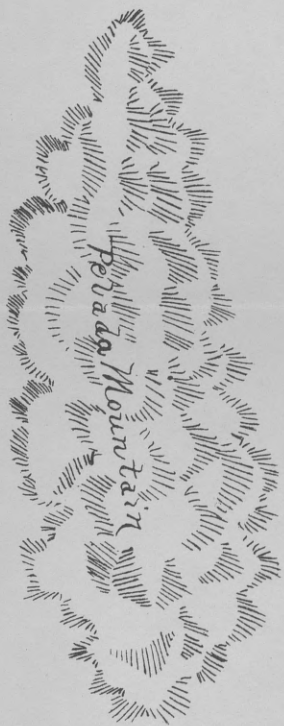 Pelada Mountain